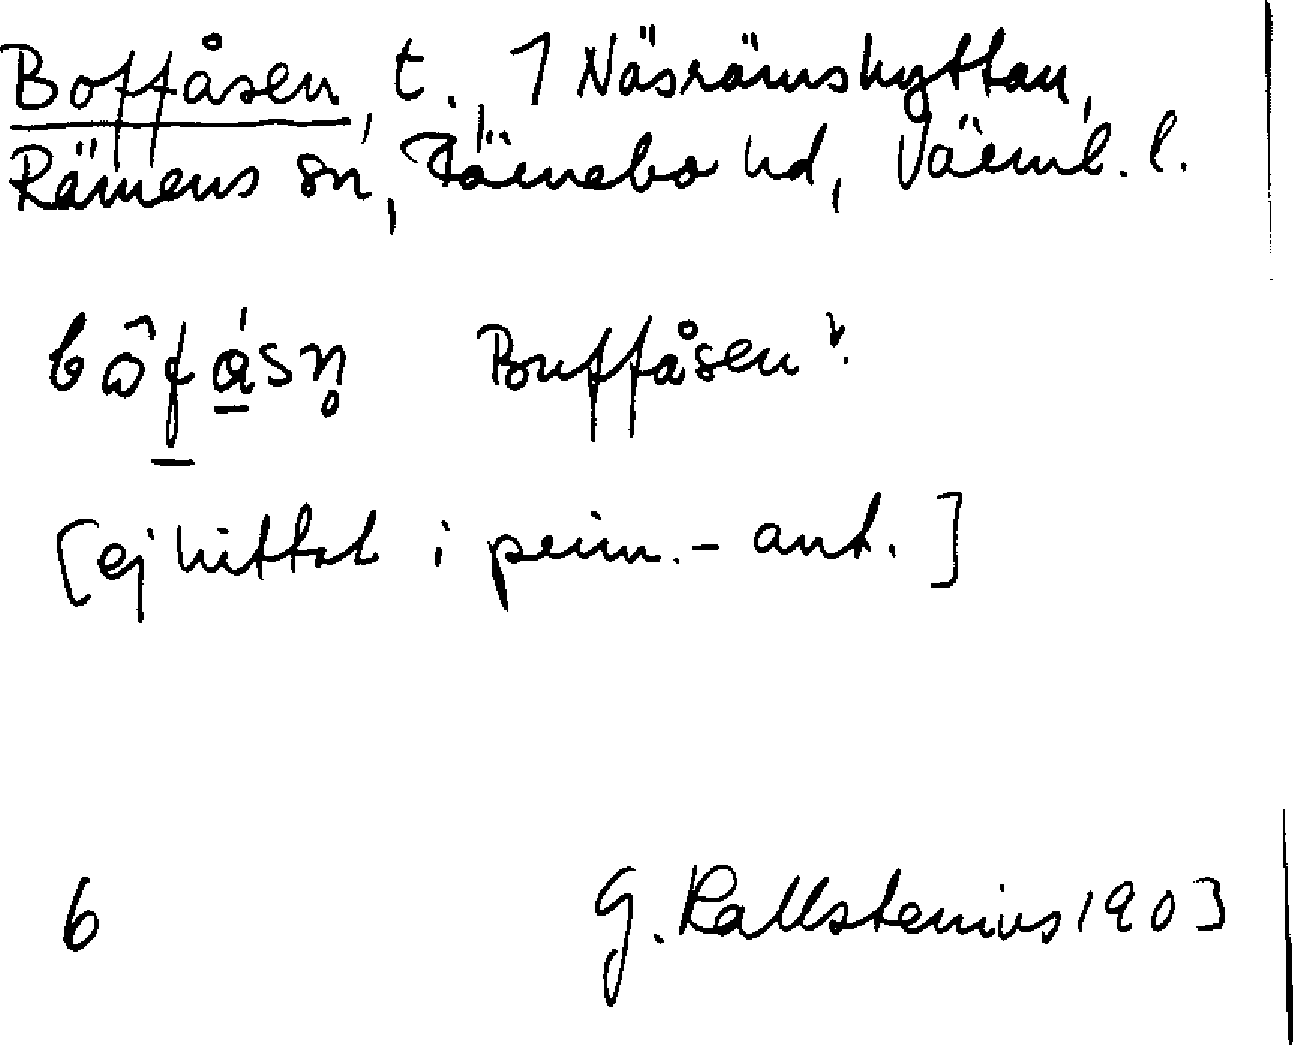 Boffåsen, t. 1 Näsrämshyttan,
Rämens sn, Färnebo hd, Värml. l.
bôfásn̥ Buffåsen
[ej hittat i prim.-ant.]
6 G. Kallstenius 1903